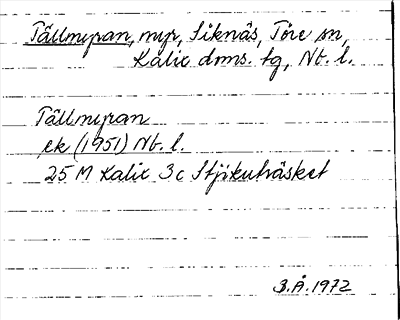 Tällmyran, myr, Siknäs, Töre sn,
Kalix doms. tg, Nb. l.
Tällmyran
ek (1951) Nb. l.
25 M Kalix 3c Stjäkuträsket
B.Å. 1972